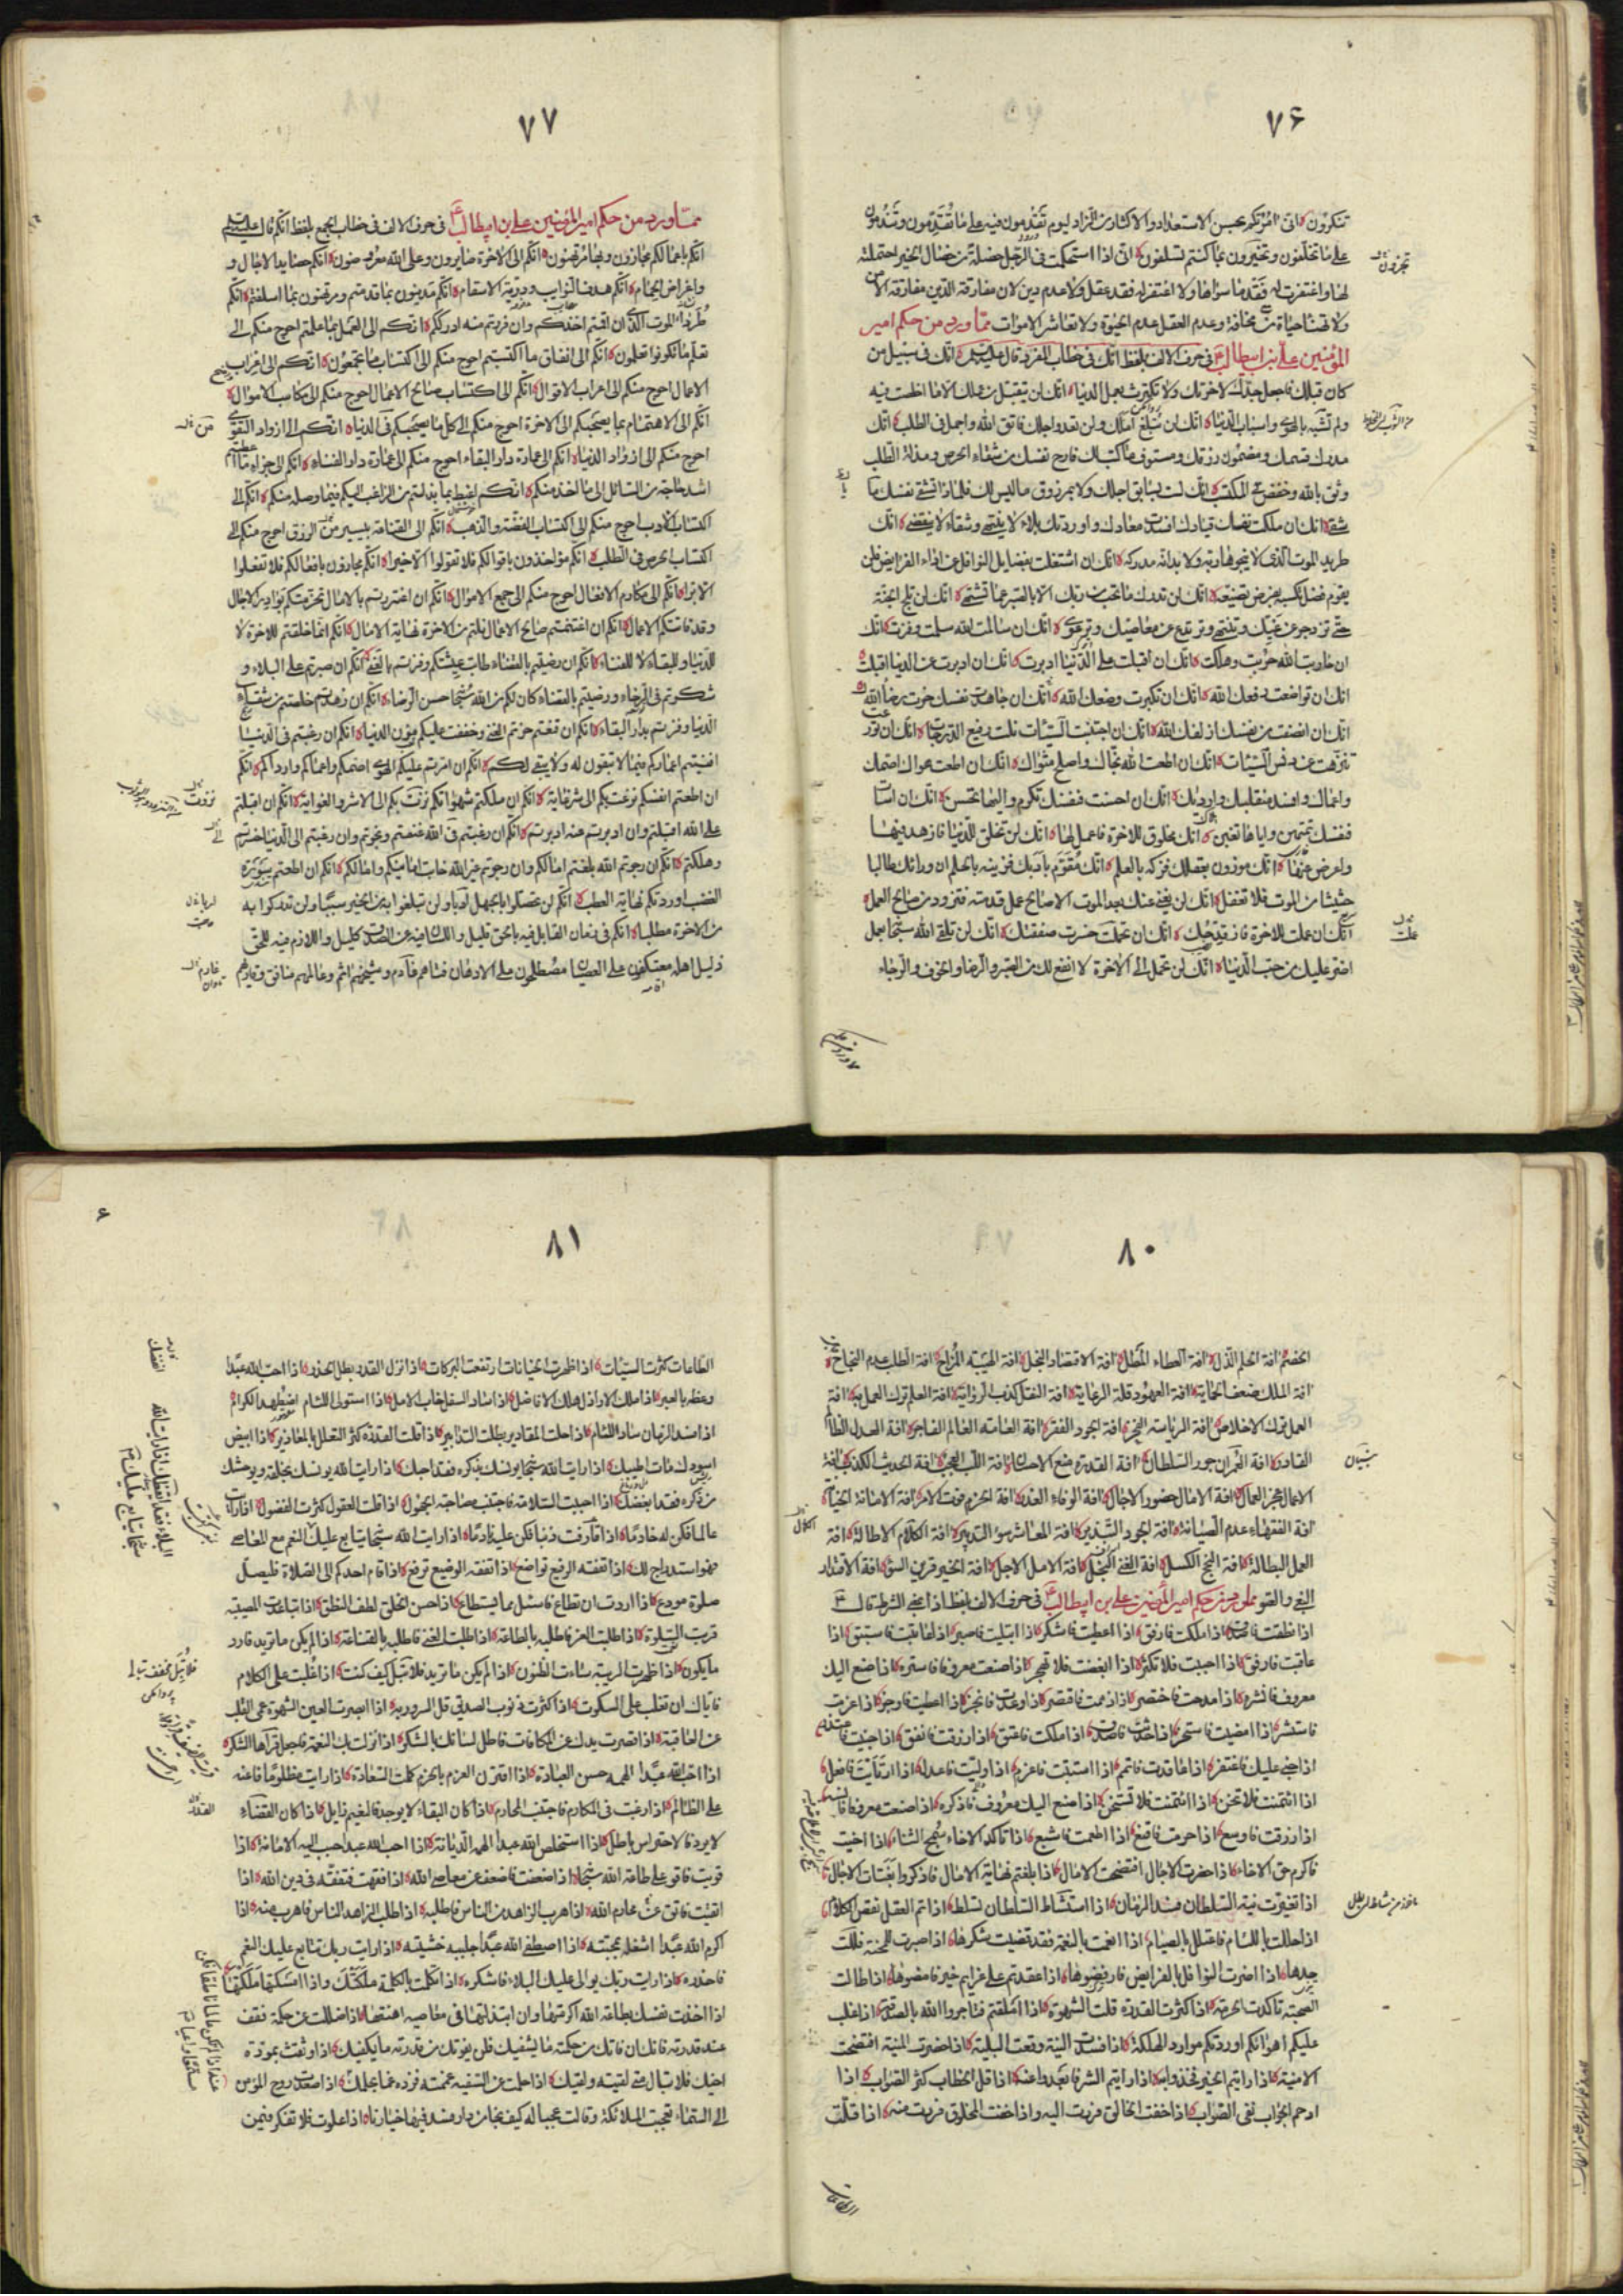 ٧۶
تنكرون انى امركم بحسن الاستعداد والاكثار من الزاد ليوم تقدمون فيه على ما تقدمون وتندمون
على ما تخلفون وتجزون بما كنتم تسلفون انى اذا استحكمت فى الرجل خصلة من خصال الخير احتملته
لها واغتفرت له فقد ما سواها ولا اغتفر له فقد عقل ولا عدم دين لان مفارقة الدين مفارقة الامن
ولا تهنأ حياة مع مخافة وعدم العقل عدم الحيوة ولا تعاشر الاموات مما ورد من حكم امير
المؤمنين على بن ابيطالب فى حرف الالف بلفظ انك فى خطاب المفرد قال انك فى سبيل من
كان قبلك فاجعل جدك لاخرتك ولا تكترث بعمل الدنيا انك لن يتقبل من عملك الا ما اخلصت فيه
ولم تشبه بالهوى واسباب الدنيا انك لن تبلغ املك ولن تعدو اجلك فاتق الله واجمل فى الطلب انك
مدرك قسمك ومضمون رزقك ومستوف ما كتب لك فارح نفسك من شقاء الحرص ومذلة الطلب
وثق بالله وخفض فى المكتسب انك لست بسابق اجلك ولا بمرزوق ما ليس لك فلماذا تشقى نفسك يا
شقى انك ان ملكت نفسك قيادك افسدت معادك واوردتك بلاء لا ينتهى وشقاء لا ينقضى انك
طريد الموت الذى لا ينجو هاربه ولا بد انه مدركه انك ان اشتغلت بفضايل النوافل عن اداء الفرايض فلن
يقوم فضل تكسبه بفرض تضيعه انك لن تدرك ما تحب من ربك الا بالصبر عما تشتهى انك لن تلج الجنة
حتى تزدجر عن غيك وتنتهى وترتدع عن معاصيك وترعوى انك ان سالمت الله سلمت وفزت انك
ان حاربت الله حربت وهلكت انك ان اقبلت على الدنيا ادبرت انك ان ادبرت عن الدنيا اقبلت
انك ان تواضعت رفعك الله انك ان تكبرت وضعك الله انك ان جاهدت نفسك حزت رضا الله
انك ان انصفت من نفسك ازلفك الله انك ان اجتنبت السيئات نلت رفيع الدرجات انك ان تورعت
تنزهت عن دنس السيئات انك ان اطعت الله نجاك واصلح مثواك انك ان اطعت هواك اصمك
واعماك وافسد منقلبك وارداك انك ان احسنت فنفسك تكرم واليها تحسن انك ان اسأت
فنفسك تمتهن واياها تغبن انك مخلوق للاخرة فاعمل لها انك لن تخلق للدنيا فازهد فيها
واعرض عنها انك موزون بعقلك فزكه بالعلم انك مقوم بادبك فزينه بالحلم ان ورائك طالبا
حثيثا من الموت فلا تغفل انك لن يغنى عنك بعد الموت الا صالح عمل قدمته فتزود من صالح العمل
انك ان عملت للاخرة فاز قدحك انك ان عملت خسرت صفقتك انك لن تلقى الله سبحانه بعمل
اضر عليك من حب الدنيا انك لن تحمل الى الاخرة لا انفع لك من الصبر والرضا والخوف والرجاء
٧٧
مما ورد من حكم امير المؤمنين على بن ابيطالب فى حرف الالف فى خطاب الجمع بلفظ انكم قال عليه السلام
انكم باعمالكم مجازون وبها مرتهنون انكم الى الاخرة صايرون وعلى الله معروضون انكم حصايد الاجال و
واغراض الحمام انكم هدف النوايب ودرية الاسقام انكم مدينون بما قدمتم ومرتهنون بما اسلفتم انكم
طرداء الموت الذى ان اقمتم اخذكم وان فررتم منه ادرككم انكم الى العمل بما علمتم احوج منكم الى
تعلم ما لم تكونوا تعلمون انكم الى انفاق ما اكتسبتم احوج منكم الى اكتساب ما تجمعون انكم الى اعراب
الاعمال احوج منكم الى اعراب الاقوال انكم الى اكتساب صالح الاعمال احوج منكم الى مكاسب الاموال
انكم الى الاهتمام بما يصحبكم الى الاخرة احوج منكم الى كل ما يصحبكم فى الدنيا انكم الى ازواد التقوى
احوج منكم الى ازواد الدنيا انكم الى عمارة دار البقاء احوج منكم الى عمارة دار الفناء انكم الى جزاء ما اعطيتم
اشد حاجة من السائل الى ما اخذ منكم انكم اغبط بما بذلتم من الراغب اليكم فيما وصله منكم انكم الى
اكتساب الادب احوج منكم الى اكتساب الفضة والذهب انكم الى القناعة بيسير من الرزق احوج منكم الى
اكتساب الحرص فى الطلب انكم مؤاخذون باقوالكم فلا تقولوا الا خيرا انكم مجازون بافعالكم فلا تفعلوا
الا برا انكم الى مكارم الافعال احوج منكم الى جمع الاموال انكم ان اغتررتم بالامال تخرمتكم بوادر الاجال
وقد فاتتكم الاعمال انكم ان اغتنمتم صالح الاعمال نلتم من الاخرة نهاية الامال انكم انما خلقتم للاخرة لا
للدنيا وللبقاء لا للفناء انكم ان رضيتم بالقضاء طابت عيشتكم وفزتم بالغنى انكم ان صبرتم على البلاء و
شكرتم فى الرخاء ورضيتم بالقضاء كان لكم من الله سبحانه حسن الرضاء انكم ان زهدتم خلصتم من شقاء
الدنيا وفزتم بدار البقاء انكم ان قنعتم حزتم الغنى وخففت عليكم مؤن الدنيا انكم ان رغبتم فى الدنيا
افنيتم اعماركم فيما لا تبقون له ولا يبقى لكم انكم ان امرتم عليكم الهوى اصمكم واعماكم وارداكم انكم
ان اطعتم انفسكم نزعت بكم الى شر غاية انكم ان ملكتم شهواتكم نزت بكم الى الاشر والغواية انكم ان اقبلتم
على الله اقبلتم وان ادبرتم عنه ادبرتم انكم ان رغبتم فى الله غنمتم ونجوتم وان رغبتم الى الدنيا خسرتم
وهلكتم انكم ان رجوتم الله بلغتم امالكم وان رجوتم غير الله خابت امانيكم وامالكم انكم ان اطعتم سورة
الغضب اوردتكم نهاية العطب انكم لن تحصلوا بالجهل اربا ولن تبلغوا به من الخير سببا ولن تدركوا به
من الاخرة مطلبا انكم فى زمان القايل فيه بالحق قليل واللسان فيه عن الصدق كليل واللازم فيه للحق
ذليل اهله معتكفون على العصيان مصطلحون على الادهان فتاهم عارم وشيخهم اثم وعالمهم منافق وقاريهم
٨٠
الخصم افة الحلم الذل افة العطاء المطل افة الاقتصاد البخل افة الهيبة المزاح افة الطلب عدم النجاح
افة الملك ضعف الحماية افة العهود قلة الرعاية افة النقل كذب الرواية افة العلم ترك العمل به افة
العمل ترك الاخلاص افة الرياسة الفخر افة الجود الفقر افة العامة العالم الفاجر افة العدل الظالم
القادر افة العمران جور السلطان افة القدرة منع الاحسان افة اللب العجب افة الحديث الكذب افة
الاعمال عجز العمال افة الامال حضور الاجال افة الوفاء الغدر افة الحزم فوت الامر افة الامانة الخيانة
افة الفقهاء عدم الصيانة افة الجود التبذير افة المعاش سوء التدبير افة الكلام الاطالة افة
العمل البطالة افة النجح الكسل افة الغنى البخل افة الامل الاجل افة الخير قرين السوء افة الاقتدار
البغى والعتو مما ورد من حكم امير المؤمنين على بن ابيطالب فى حرف الالف بلفظ اذا بمعنى الشرط قال
اذا نطقت فاصدق اذا ملكت فارفق اذا اعطيت فاشكر اذا ابتليت فاصبر اذا عاتبت فاستبق اذا
عاقبت فارفق اذا احببت فلا تكثر اذا ابغضت فلا تهجر اذا صنعت معروفا فاستره اذا صنع اليك
معروف فانشره اذا مدحت فاختصر اذا ذممت فاقتصر اذا وعدت فانجز اذا اعطيت فاوجز اذا عزمت
فاستشر اذا امضيت فاستخر اذا حدثت فاصدق اذا ملكت فاعتق اذا رزقت فانفق اذا جنيت فاعتذر
اذا جنى عليك فاغتفر اذا عاقدت فاتمم اذا استبنت فاعزم اذا وليت فاعدل اذا ارتأيت فافعل
اذا ائتمنت فلا تخن اذا ائتمنت فلا تستخن اذا صنع اليك معروف فاذكره اذا صنعت معروفا فانسه
اذا رزقت فاوسع اذا حرمت فاقنع اذا اطعمت فاشبع اذا تاكد الاخاء سمج الثناء اذا اخيت
فاكرم حق الاخاء اذا حضرت الاجال افتضحت الامال اذا بلغتم نهاية الامال فاذكروا بغتات الاجال
اذا تغيرت نية السلطان فسد الزمان اذا استشاط السلطان تسلط اذا تم العقل نقص الكلام
اذا حللت باللئام فاعتلل بالصيام اذا انعمت بالنعمة فقد قضيت شكرها اذا صبرت للمحنة فللت
حدها اذا اضرت النوافل بالفرايض فارفضوها اذا عقدتم على عزايم خير فامضوها اذا طالت
الصحبة تاكدت الحرمة اذا كثرت القدرة قلت الشهوة اذا املقتم فتاجروا الله بالصدقة اذا غلب
عليكم اهوائكم اوردتكم موارد الهلكة اذا فسدت النية وقعت البلية اذا حضرت المنية افتضحت
الامنية اذا رايتم الخير فخذوا به اذا رايتم الشر فابعدوا عنه اذا قل الخطاب كثر الصواب اذا
ازدحم الجواب نفى الصواب اذا خفت الخالق فررت اليه واذا خفت المخلوق فررت منه اذا قلت
٨١
الطاعات كثرت السيئات اذا ظهرت الخيانات ارتفعت البركات اذا نزل القدر بطل الحذر اذا احب الله عبدا
وعظه بالعبر اذا ملك الاراذل هلك الافاضل اذا ساد السفل خاب الامل اذا استولى اللئام اضطهد الكرام
اذا فسد الزمان ساد اللئام اذا حلت المقادير بطلت التدابير اذا قلت القدرة كثر التعلل بالمعاذير اذا ابيض
اسودك مات اطيبك اذا رايت الله سبحانه يونسك بذكره فقد احبك اذا رايت الله يونسك بخلقه ويوحشك
من ذكره فقد ابغضك اذا احببت السلامة فاجتنب مصاحبة الجهول اذا قلت العقول كثرت الفضول اذا رايت
عالما فكن له خادما اذا قارفت ذنبا فكن عليه نادما اذا رايت الله سبحانه يتابع عليك النعم مع المعاصى
فهو استدراج لك اذا تفقه الرفيع تواضع اذا تفقه الوضيع ترفع اذا قام احدكم الى الصلاة فليصل
صلوة مودع اذا اردت ان تطاع فاسئل ما يستطاع اذا حسن الخلق لطف النطق اذا تباعدت المصيبة
قربت السلوة اذا طلبت العز فاطلبه بالطاعة اذا طلبت الغنى فاطلبه بالقناعة اذا لم يكن ما تريد فارد
ما يكون اذا ظهرت الريبة ساءت الظنون اذا لم يكن ما تريد فلا تبل كيف كنت اذا غلبت على الكلام
فاياك ان تغلب على السكوت اذا كثرت ذنوب الصديق قل السرور به اذا ابصرت العين الشهوة عمى القلب
عن العاقبة اذا قصرت يدك عن المكافات فاطل لسانك بالشكر اذا نزلت بك النعمة فاجعل قراها الشكر
اذا احب الله عبدا الهمه حسن العبادة اذا اقترن العزم بالحزم كملت السعادة اذا رايت مظلوما فاعنه
على الظالم اذا رغبت فى المكارم فاجتنب المحارم اذا كان البقاء لا يوجد فالنعيم زايل اذا كان القضاء
لا يرد فالاحتراس باطل اذا استخلص الله عبدا الهمه الديانة اذا احب الله عبدا حبب اليه الامانة اذا
قويت فاقو على طاعة الله سبحانه اذا ضعفت فاضعف عن معاصى الله اذا تفقهت فتفقه فى دين الله اذا
اتقيت فاتق عن محارم الله اذا هرب الزاهد من الناس فاطلبه اذا طلب الزاهد الناس فاهرب منه اذا
اكرم الله عبدا اشغله بمحبته اذا اصطفى الله عبدا جلببه خشيته اذا رايت ربك يتابع عليك النعم
فاحذره اذا رايت ربك يوالى عليك البلاء فاشكره اذا تكلمت بالكلمة ملكتك واذا امسكتها ملكتها
اذا اخذت نفسك بطاعة الله اكرمتها وان ابتذلتها فى معاصيه اهنتها اذا ضللت عن حكمة فقف
عند قدرته فانك ان فاتك من حكمته ما يشفيك فلن يفوتك من قدرته ما يكفيك اذا وثقت بمودة
اخيك فلا تبال متى لقيته ولقيك اذا حلمت عن السفيه غممته فزده غما بحلمك اذا صعدت روح المؤمن
الى السماء تعجبت الملائكة وقالت عجبا له كيف نجا من دار فسد فيها خيارنا اذا علوت فلا تفكر فيمن